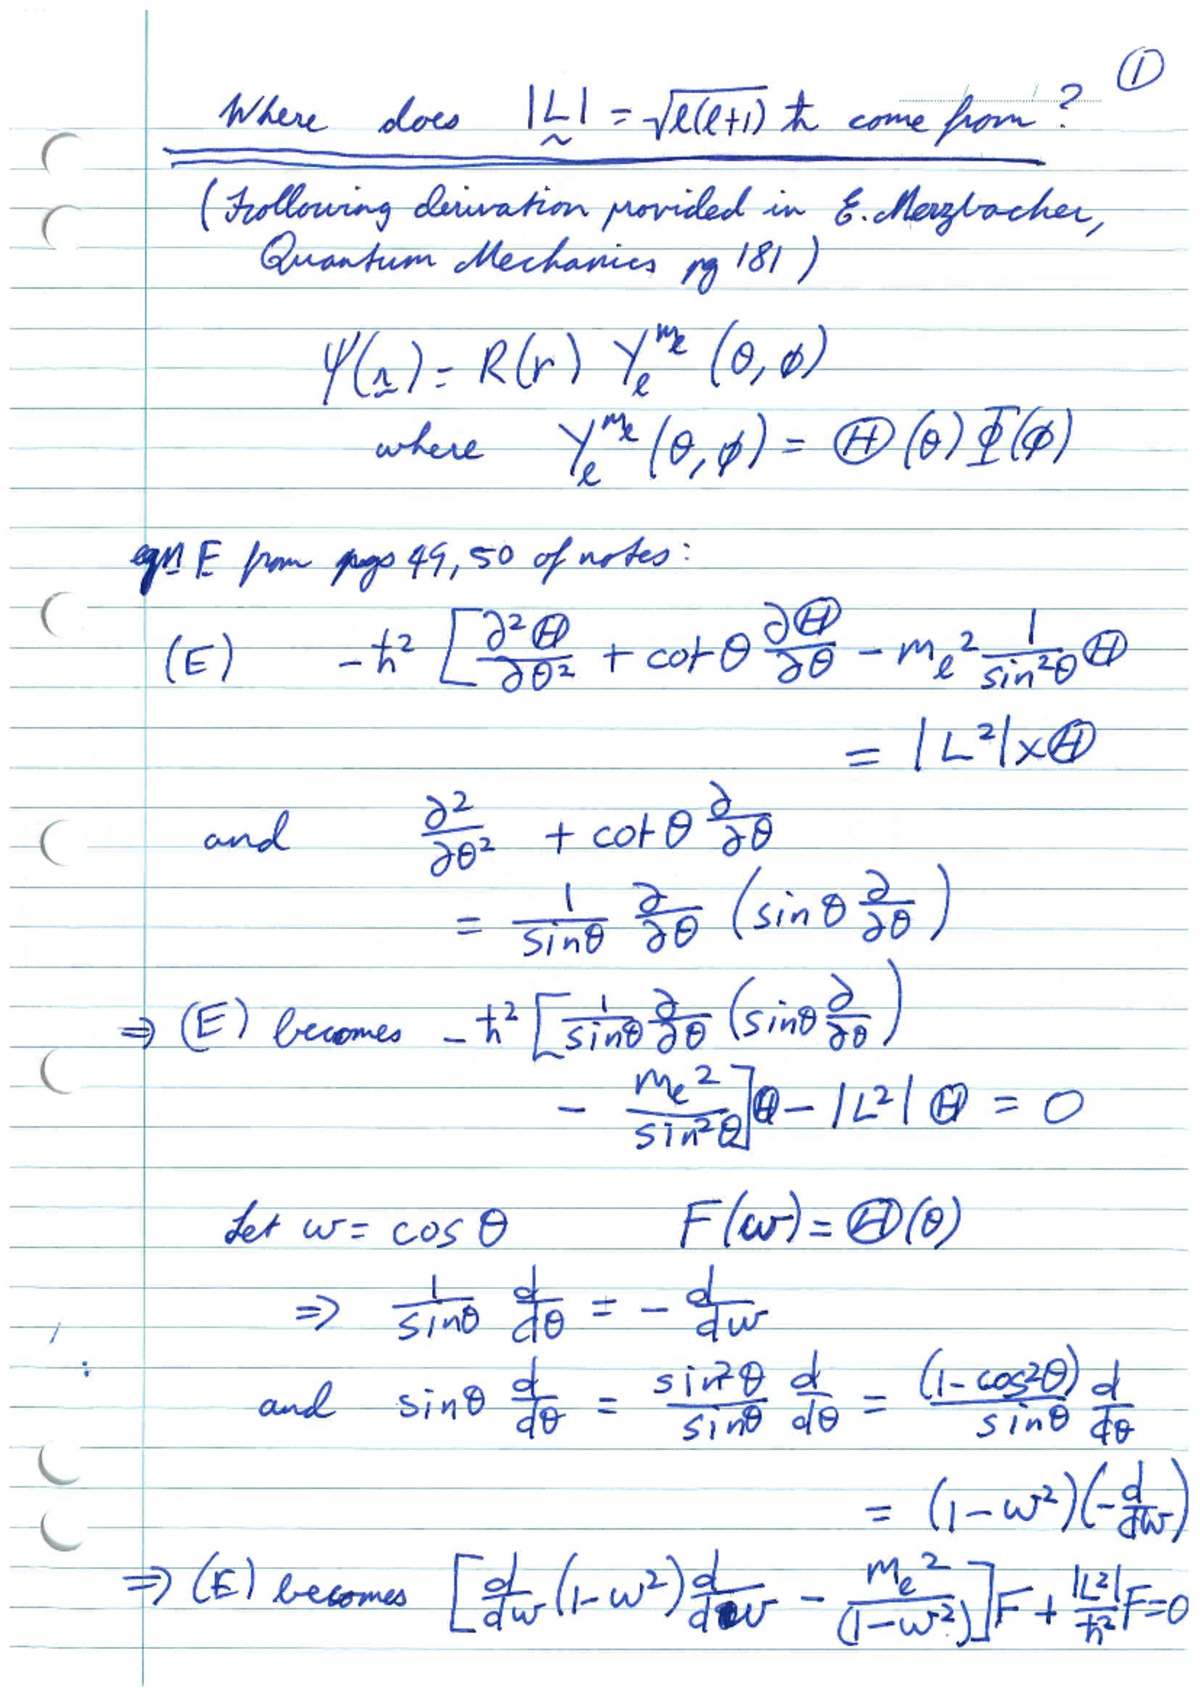 ①
Where does |L| = √l(l+1) ħ come from?
(Following derivation provided in E. Merzbacher,
Quantum Mechanics pg 181)
ψ(r) = R(r) Y_l^{m_l} (θ, ϕ)
where Y_l^{m_l} (θ, ϕ) = Θ(θ) Φ(ϕ)
eqn E from pgs 49, 50 of notes:
(E) -ħ² [ ∂²Θ/∂θ² + cot θ ∂Θ/∂θ - m_l² 1/sin²θ Θ
= |L²| × Θ
and ∂²/∂θ² + cot θ ∂/∂θ
= 1/sinθ ∂/∂θ (sin θ ∂/∂θ)
⇒ (E) becomes -ħ² [ 1/sinθ ∂/∂θ (sinθ ∂/∂θ)
- m_l²/sin²θ ] Θ - |L²| Θ = 0
Let w = cos θ F(w) = Θ(θ)
⇒ 1/sinθ d/dθ = - d/dw
and sinθ d/dθ = sin²θ/sinθ d/dθ = (1-cos²θ)/sinθ d/dθ
= (1-w²)(-d/dw)
⇒ (E) becomes [ d/dw (1-w²) d/dw - m_l²/(1-w²) ] F + |L²|/ħ² F = 0